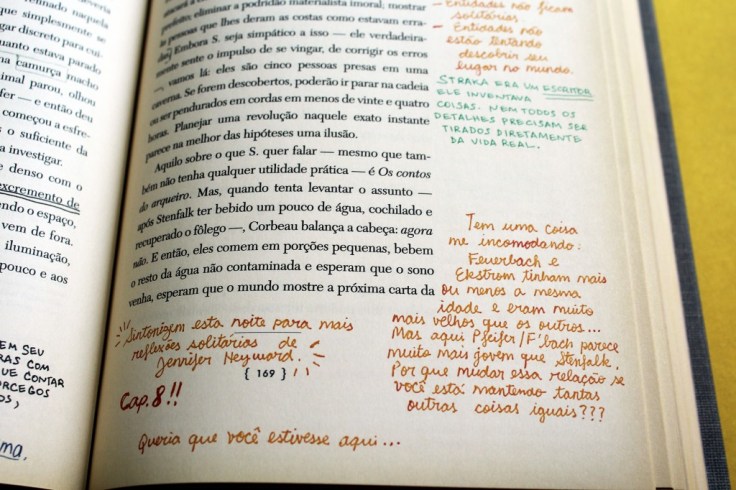 rminado naquela
que simplesmente se
gar discreto para cui-
uanto estava parado
na camurça macho
imal parou, olhou
fer — e então deu
começou a esfre-
s o suficiente da
a investigar.
e denso com o
excremento de
endo o espaço,
vem de fora.
iluminação,
pouco e aos
EM SEU
RAS COM
QUE CONTAR
ORCEGOS
OS,
ma.
perfeito; eliminar a podridão materialista imoral; mostrar
às pessoas que lhes deram as costas como estavam erra-
das? Embora S. seja simpático a isso — ele verdadeira-
mente sente o impulso de se vingar, de corrigir os erros
—, vamos lá: eles são cinco pessoas presas em uma
caverna. Se forem descobertos, poderão ir parar na cadeia
ou ser pendurados em cordas em menos de vinte e quatro
horas. Planejar uma revolução naquele exato instante
parece na melhor das hipóteses uma ilusão.
Aquilo sobre o que S. quer falar — mesmo que tam-
bém não tenha qualquer utilidade prática — é Os contos
do arqueiro. Mas, quando tenta levantar o assunto —
após Stenfalk ter bebido um pouco de água, cochilado e
recuperado o fôlego —, Corbeau balança a cabeça: agora
não. E então, eles comem em porções pequenas, bebem
o resto da água não contaminada e esperam que o sono
venha, esperam que o mundo mostre a próxima carta da
{ 169 }
- Entidades não ficam
solitárias.
- Entidades não
estão tentando
descobrir seu
lugar no mundo.
STRAKA ERA UM ESCRITOR.
ELE INVENTAVA
COISAS. NEM TODOS OS
DETALHES PRECISAM SER
TIRADOS DIRETAMENTE
DA VIDA REAL.
Tem uma coisa
me incomodando:
Feuerbach e
Ekstrom tinham mais
ou menos a mesma
idade e eram muito
mais velhos que os outros...
Mas aqui Pfeifer/F'bach parece
muito mais jovem que Stenfalk.
Por que mudar essa relação se
você está mantendo tantas
outras coisas iguais???
Sintonizem esta noite para mais
reflexões solitárias de
Jennifer Heyward.
Cap. 8!!
Queria que você estivesse aqui...